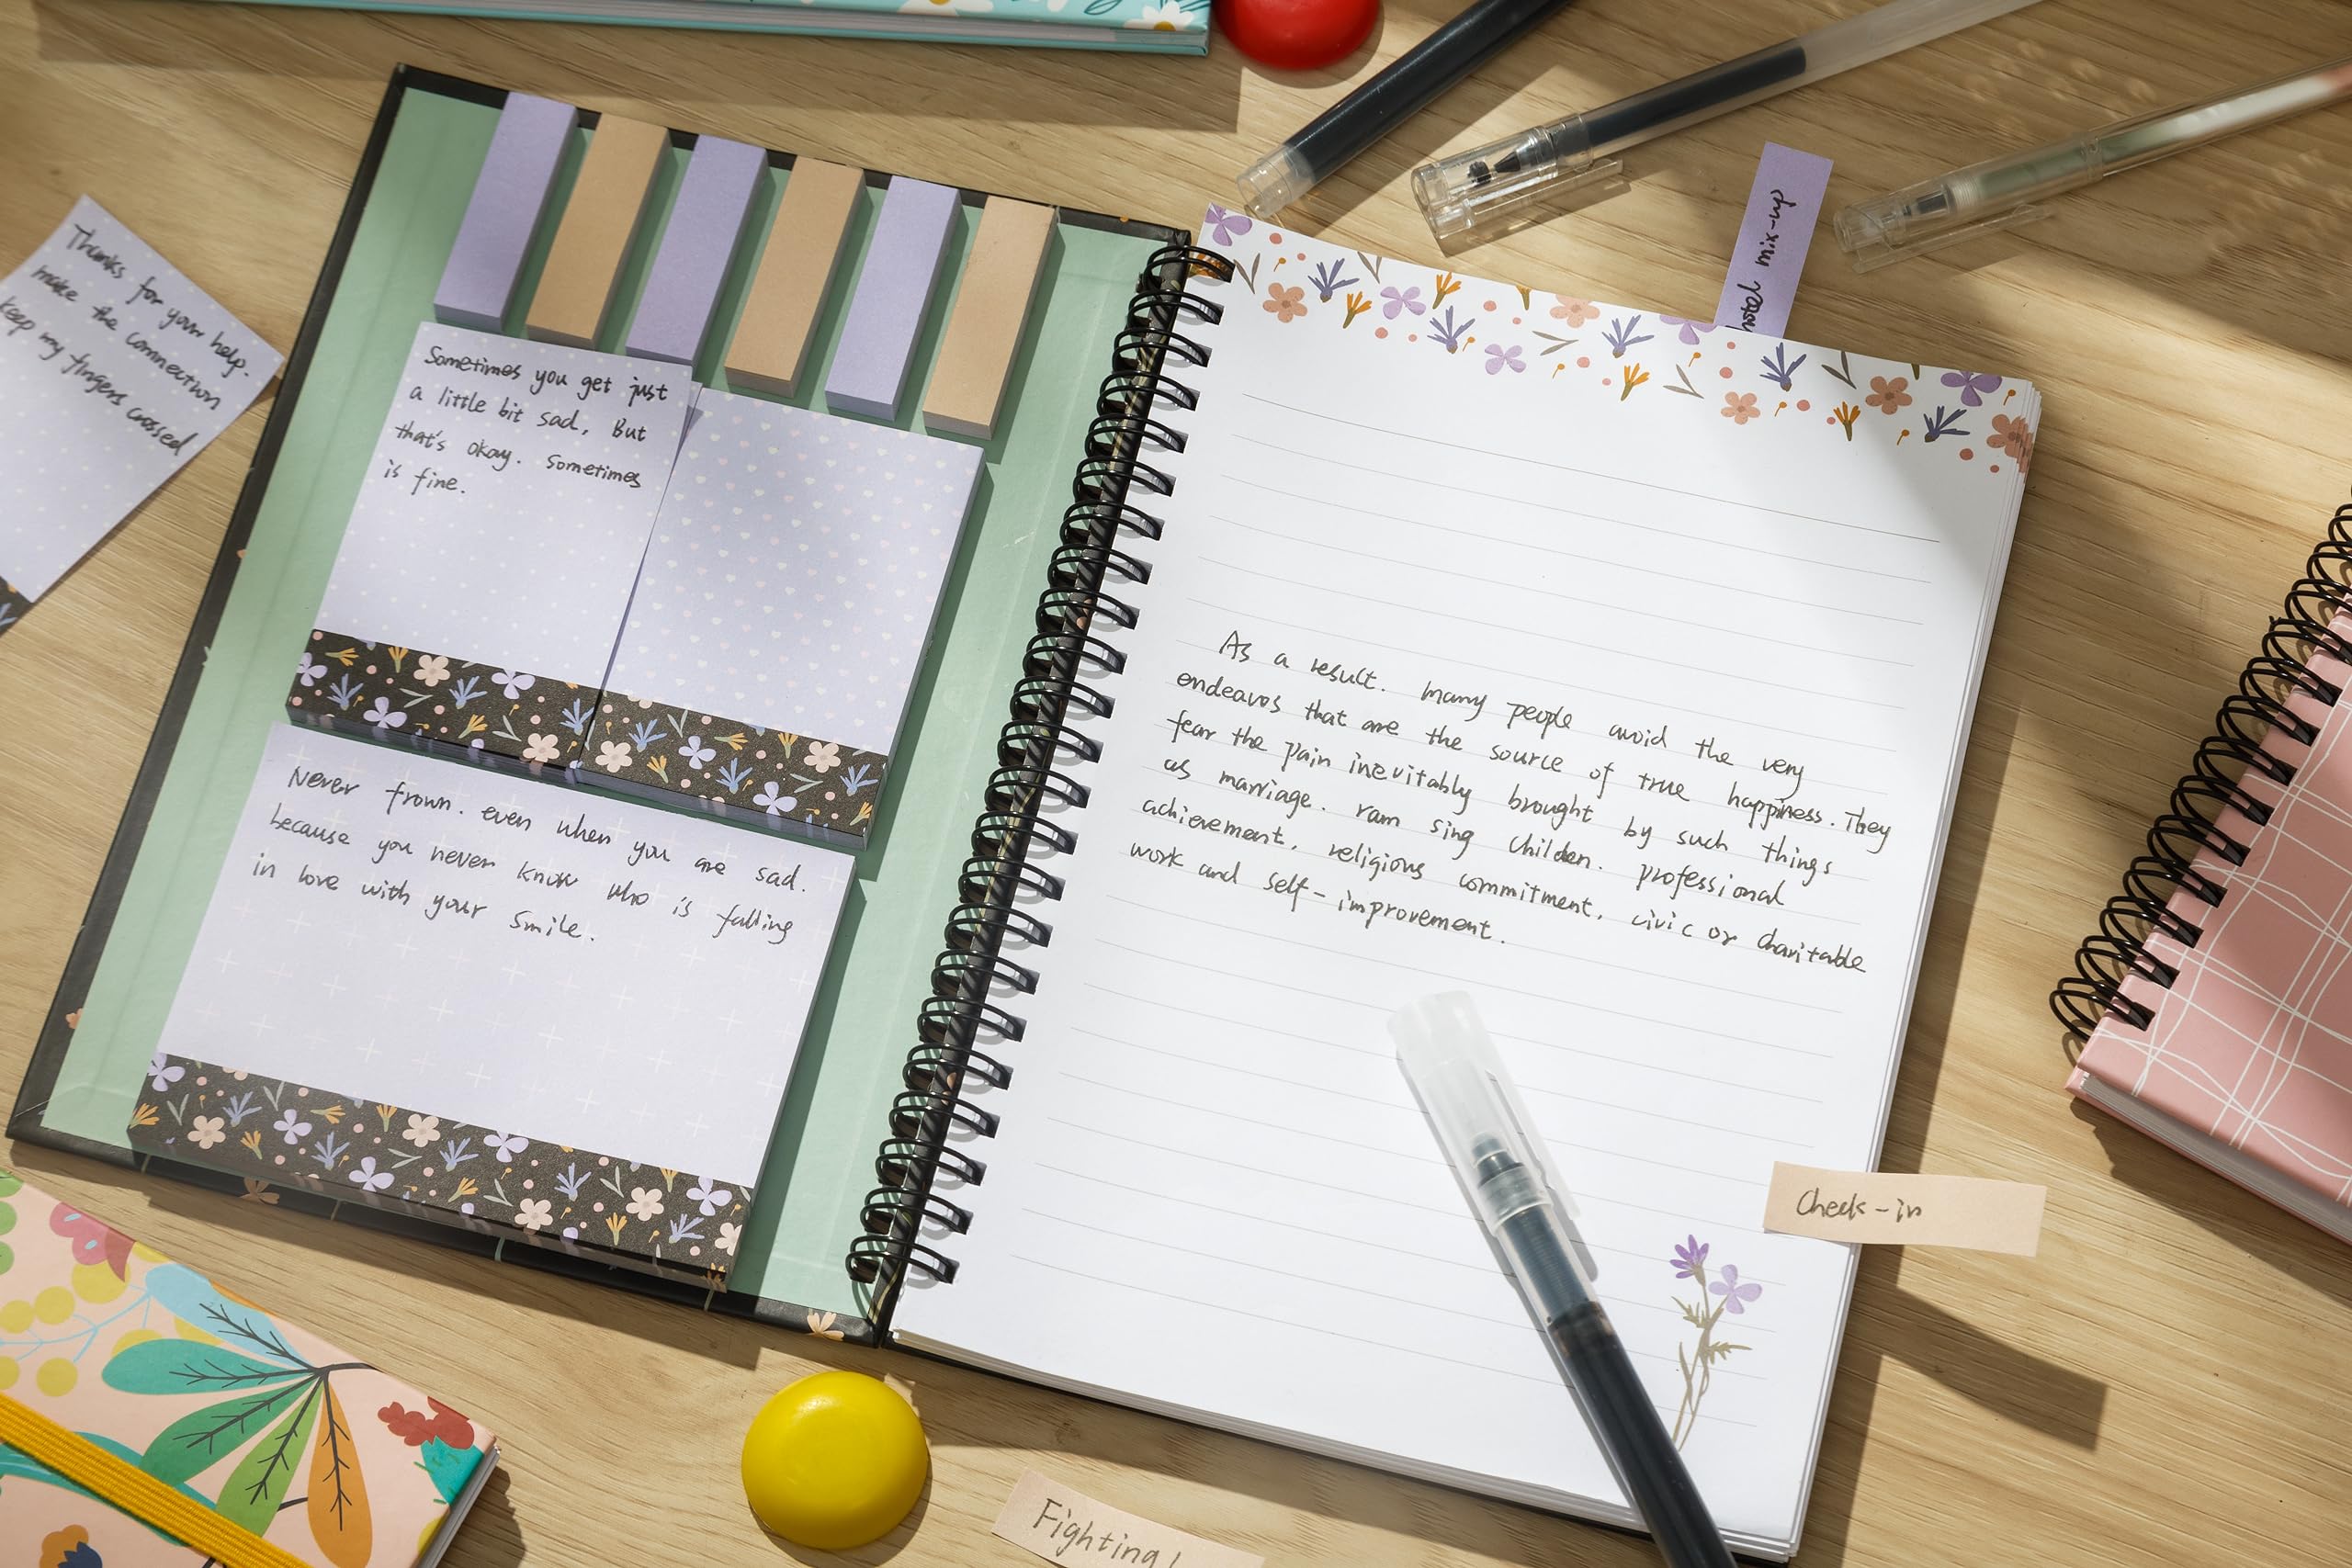 Thanks for your help.
make the connection
keep my fingers crossed
Sometimes you get just
a little bit sad, But
that's okay. Sometimes
is fine.
Never frown. even when you are sad.
because you never know who is falling
in love with your smile.
hotel mix-up
As a result. many people avoid the very
endeavos that are the source of true happiness. They
fear the pain inevitably brought by such things
as marriage. ram sing childen. professional
achievement, religious commitment, civic or charitable
work and self-improvement.
Check-in
Fighting!